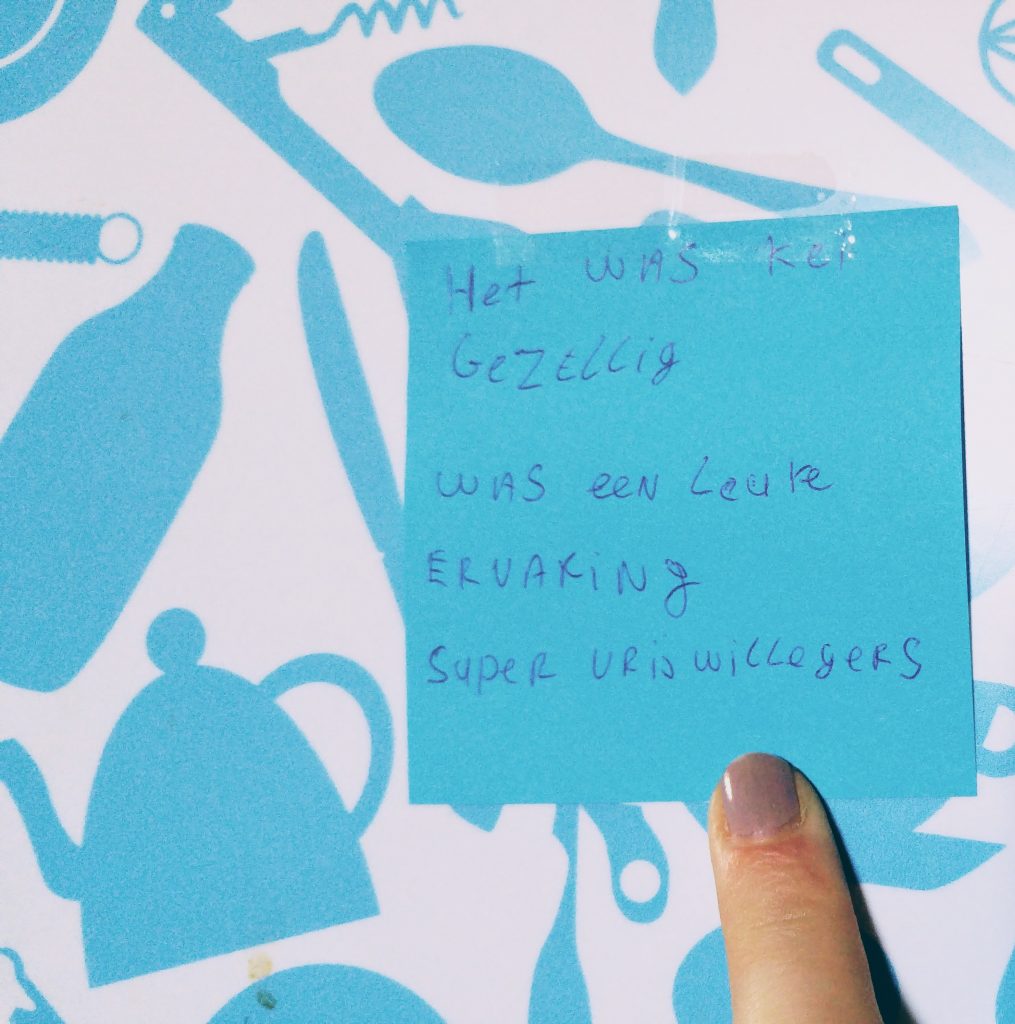 Het WAS kei
GeZELLig
WAS een Leuke
ERVARiNg
SUPER VRijWiLLegeRS